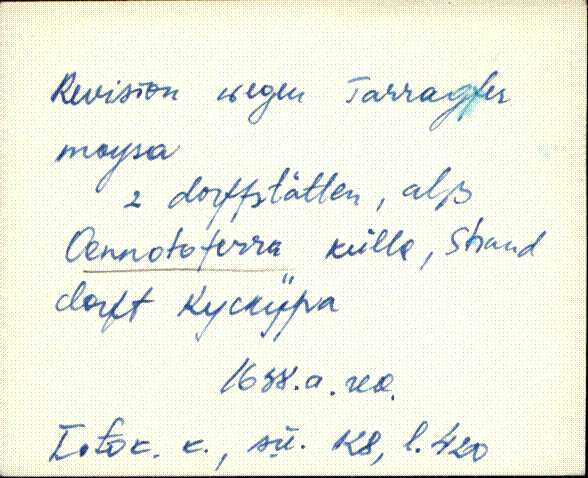 Revision wegen Tarragfer
moysa
2 dorffstätten, alß
Oennotoferra külla, Strand
dorft Kyckÿpra
1688.a. rev.
I. fk. k., sü. K8, l. 420